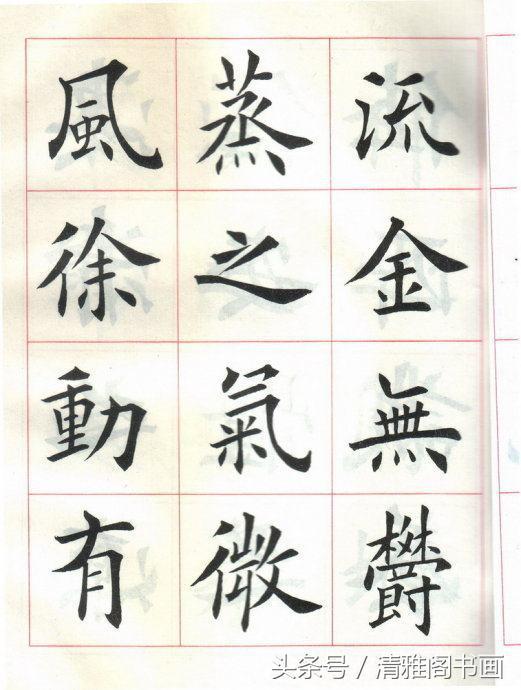 流金無欝
蒸之氣微
風徐動有
头条号 / 清雅阁书画